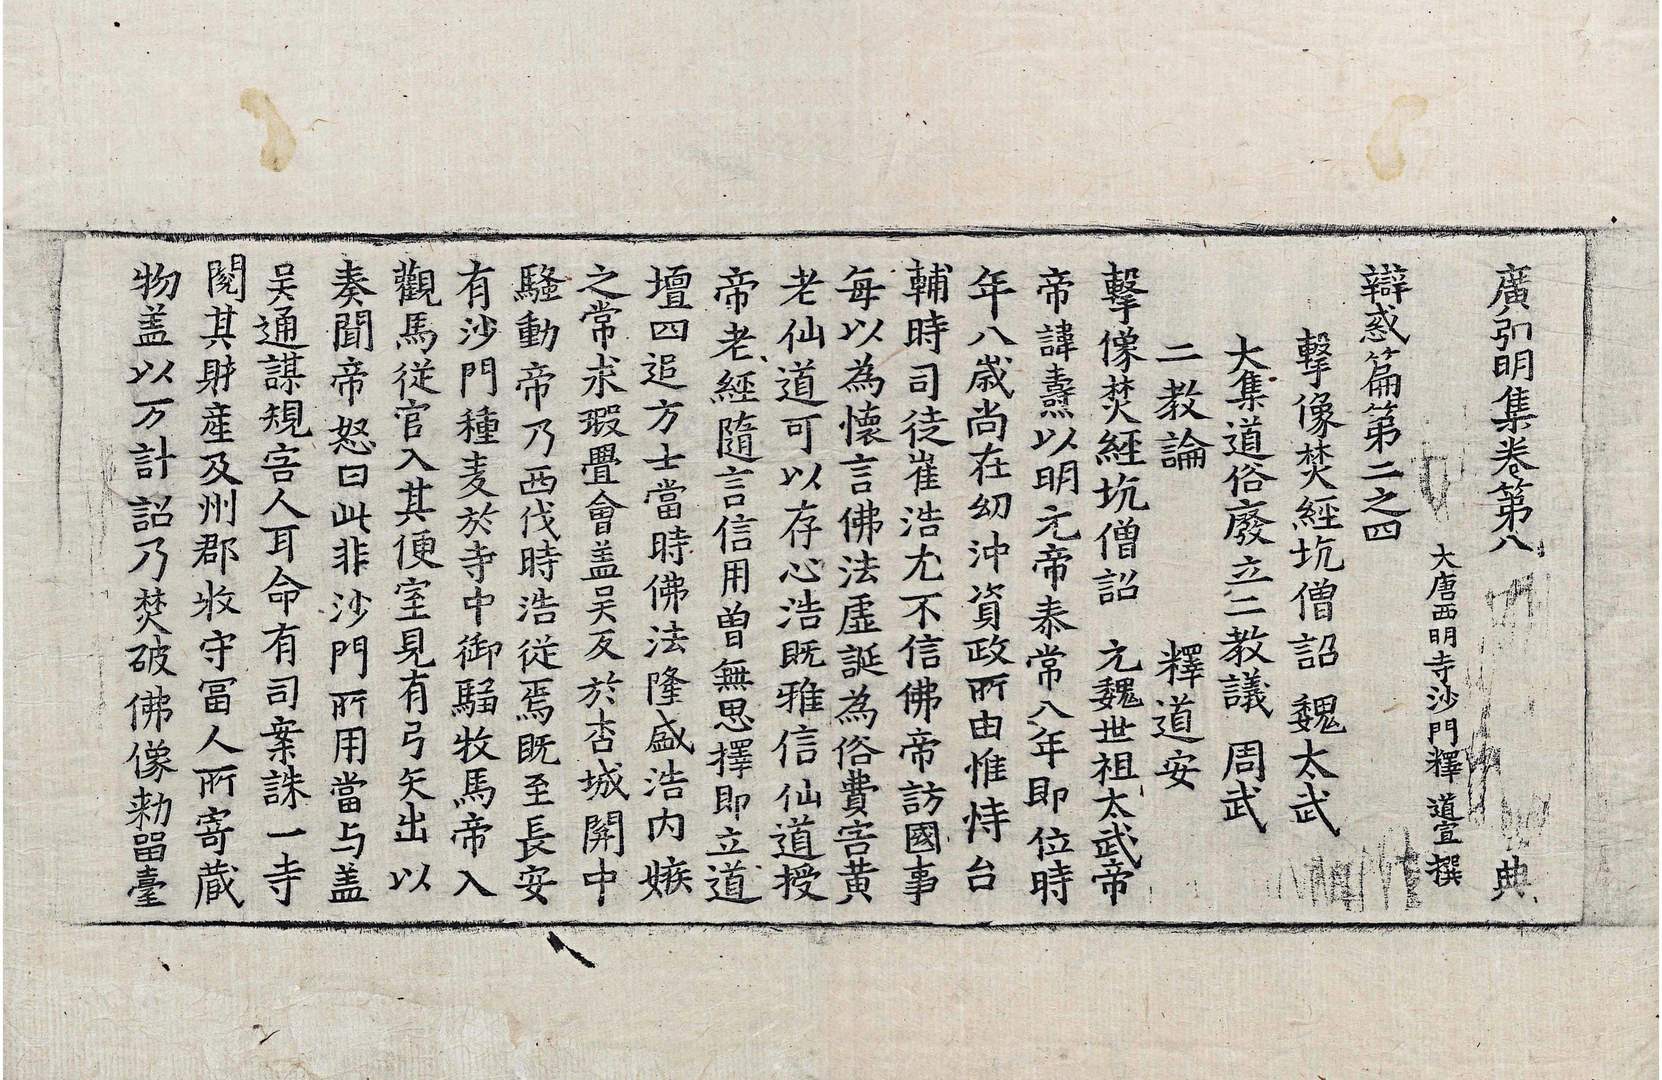 廣弘明集卷第八　典
大唐西明寺沙門釋　道宣撰
辯惑篇第二之四
擊像焚經坑僧詔　魏太武
大集道俗廢立二教議　周武
二教論　釋道安
擊像焚經坑僧詔　元魏世祖太武帝
帝諱燾以明元帝泰常八年即位時
年八歲尚在幼沖資政所由惟恃台
輔時司徒崔浩尤不信佛帝訪國事
每以為懷言佛法虛誕為俗費害黃
老仙道可以存心浩既雅信仙道授
帝老經隨言信用曾無思擇即立道
壇四追方士當時佛法隆盛浩內嫉
之常求瑕舋會盖吳反於杏城關中
騷動帝乃西伐時浩從焉既至長安
有沙門種麦於寺中御騶牧馬帝入
觀馬從官入其便室見有弓矢出以
奏聞帝怒曰此非沙門所用當与盖
吳通謀規害人耳命有司案誅一寺
閱其財產及州郡收守冨人所寄藏
物盖以万計詔乃焚破佛像勑留臺